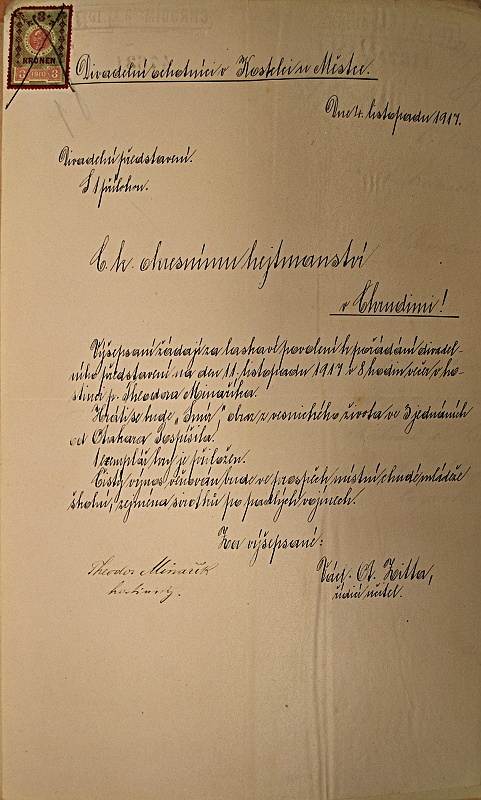 3
KRONEN
3 1910 3
Divadelní ochotníci v Kostelci u Městce.
Dne 4. listopadu 1917.
Divadelní představení.
S 1 přílohou.
C. k. okresnímu hejtmanství
v Chrudimi!
Výšepsaní žádají za laskavé povolení ku pořádání divadel-
ního představení na den 11. listopadu 1917 v 8 hodin večer v ho-
stinci p. Theodora Minaříka.
Hráti se bude obraz z vesnického života ve 3 jednáních
od Otakara Pospíšila.
1 exemplář hry je přiložen.
Čistý výnos věnován bude ve prospěch místní chudé mládeže
školní, zejména sirotků po padlých vojínech.
Za výšepsané:
Theodor Minařík
hostinský.
Václ. Ot. Zitta,
řídící učitel.